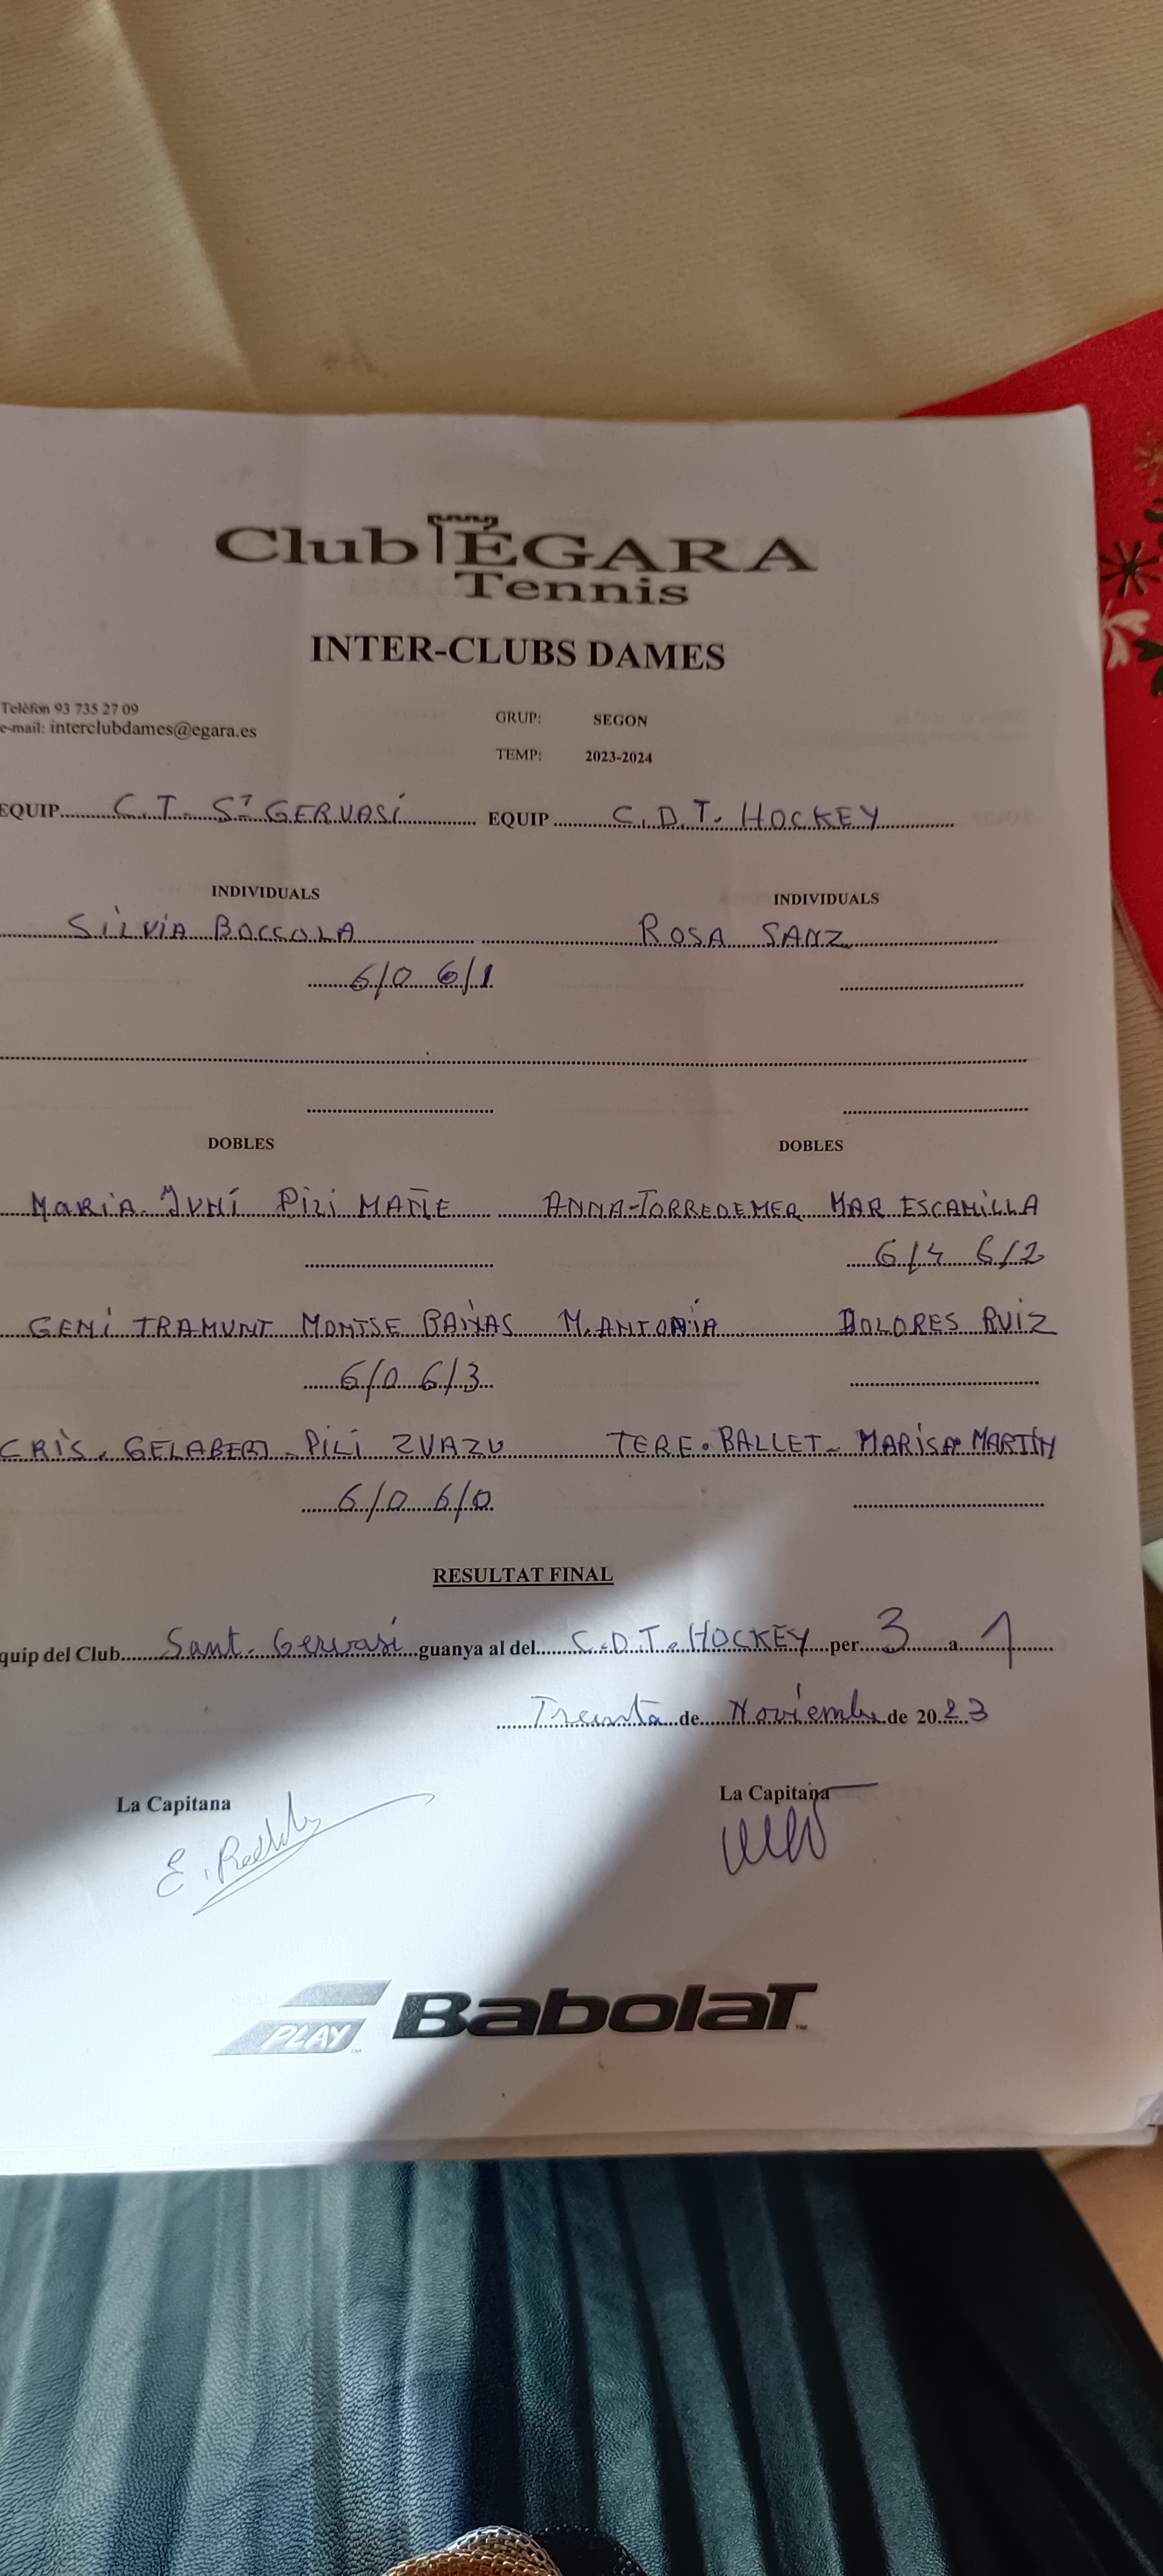 Club ÉGARA
Tennis
INTER-CLUBS DAMES
Telèfon 93 735 27 09
e-mail: interclubdames@egara.es
GRUP: SEGON
TEMP: 2023-2024
EQUIP C.T. St GERVASI EQUIP C.D.T. HOCKEY
INDIVIDUALS INDIVIDUALS
SILVIA BOCCOLA ROSA SANZ
6/0 6/1
DOBLES DOBLES
MARIA JUNÍ PILI MAÑE ANNA-TORREDEMER MAR ESCAMILLA
6/4 6/2
GEMI TRAMUNT MONTSE BAIXAS M. ANTONIA DOLORES RUIZ
6/0 6/3
CRIS. GELABERT - PILI ZUAZU TERE. BALLET - MARISA MARTÍN
6/0 6/0
RESULTAT FINAL
quip del Club Sant. Gervasi guanya al del C.D.T. HOCKEY per 3 a 1
Treinta de Noviembre de 2023
La Capitana La Capitana
PLAY BabolaT